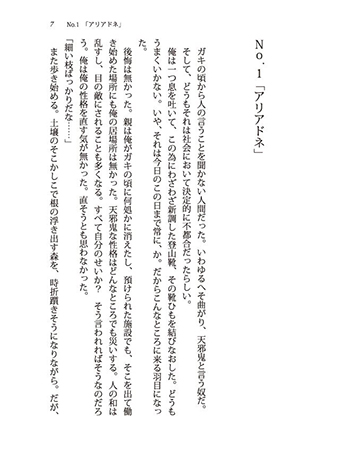 7　No.1　「アリアドネ」
No. 1　「アリアドネ」
ガキの頃から人の言うことを聞かない人間だった。いわゆるへそ曲がり、天邪鬼と言う奴だ。
そして、どうもそれは社会において決定的に不都合だったらしい。
俺は一つ息を吐いて、この為にわざわざ新調した登山靴、その靴ひもを結びなおした。どうも
うまくいかない。いや、それは今日のこの日まで常に、か。だからこんなところに来る羽目になっ
た。
後悔は無かった。親は俺がガキの頃に何処かに消えたし、預けられた施設でも、そこを出て働
き始めた場所にも俺の居場所は無かった。天邪鬼な性格はどんなところでも災いする。人の和は
乱すし、目の敵にされることも多くなる。すべて自分のせいか？　そう言われればそうなのだろ
う。俺は俺の性格を直す気が無かった。直そうとも思わなかった。
「細い枝ばっかりだな……」
また歩き始める。土壌のそこかしこで根の浮き出す森を、時折躓きそうになりながら。だが、